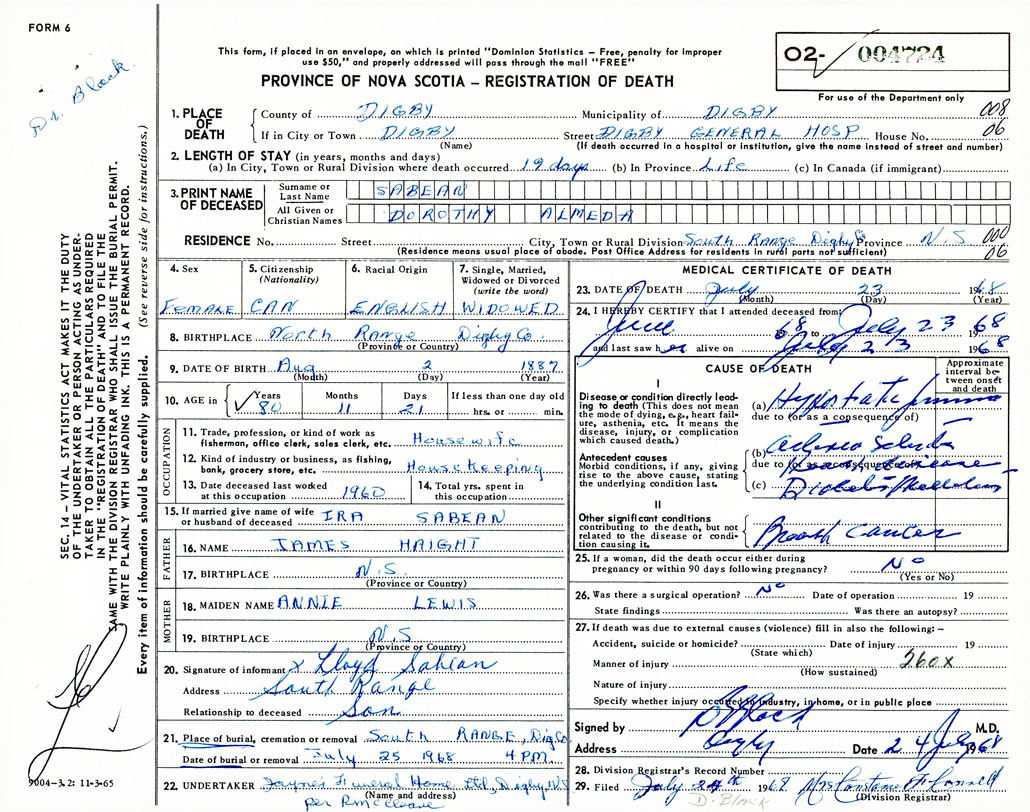 FORM 6
Dr. Black.
This form, if placed in an envelope, on which is printed "Dominion Statistics – Free, penalty for improper
use $50," and properly addressed will pass through the mail "FREE"
PROVINCE OF NOVA SCOTIA – REGISTRATION OF DEATH
02- 004724
For use of the Department only
1. PLACE OF DEATH { County of DIGBY Municipality of DIGBY 008
If in City or Town DIGBY Street DIGBY GENERAL HOSP House No. 06
(Name) (If death occurred in a hospital or institution, give the name instead of street and number)
2. LENGTH OF STAY (in years, months and days)
(a) In City, Town or Rural Division where death occurred 19 days (b) In Province Life (c) In Canada (if immigrant)
3. PRINT NAME OF DECEASED { Surname or Last Name SABEAN
All Given or Christian Names DOROTHY ALMEDA
RESIDENCE No. Street City, Town or Rural Division South Range Digby Co Province N.S 000
(Residence means usual place of abode. Post Office Address for residents in rural parts not sufficient) 06
4. Sex 5. Citizenship (Nationality) 6. Racial Origin 7. Single, Married, Widowed or Divorced (write the word)
FEMALE CAN ENGLISH WIDOWED
8. BIRTHPLACE North Range Digby Co.
(Province or Country)
9. DATE OF BIRTH Aug 2 1887
(Month) (Day) (Year)
10. AGE in { Years Months Days If less than one day old
✓ 80 11 21 hrs. or min.
OCCUPATION
11. Trade, profession, or kind of work as
fisherman, office clerk, sales clerk, etc. Housewife
12. Kind of industry or business, as fishing,
bank, grocery store, etc. Housekeeping
13. Date deceased last worked at this occupation 1960 14. Total yrs. spent in this occupation
15. If married give name of wife
or husband of deceased IRA SABEAN
FATHER
16. NAME JAMES HAIGHT
17. BIRTHPLACE N.S.
(Province or Country)
MOTHER
18. MAIDEN NAME ANNIE LEWIS
19. BIRTHPLACE N.S
(Province or Country)
20. Signature of informant x Lloyd Sabean
Address South Range
Relationship to deceased Son
21. Place of burial, cremation or removal South RANGE, Dig Co
Date of burial or removal July 25 1968 4 PM.
22. UNDERTAKER Jayne's Funeral Home Ltd, Digby, N.S
(Name and address)
per
MEDICAL CERTIFICATE OF DEATH
23. DATE OF DEATH July 23 1968
(Month) (Day) (Year)
24. I HEREBY CERTIFY that I attended deceased from:
June 1968 to July 23 1968
and last saw her alive on July 23 1968
CAUSE OF DEATH
Approximate interval between onset and death
I
Disease or condition directly leading to death (This does not mean the mode of dying, e.g., heart failure, asthenia, etc. It means the disease, injury, or complication which caused death.)
(a) Hypostatic
due to (or as a consequence of)
Antecedent causes
Morbid conditions, if any, giving rise to the above cause, stating the underlying condition last.
(b)
due to (or as a consequence of)
(c) Diabetes Mellitus
II
Other significant conditions
contributing to the death, but not related to the disease or condition causing it.
Breast Cancer
25. If a woman, did the death occur either during
pregnancy or within 90 days following pregnancy? No
(Yes or No)
26. Was there a surgical operation? No Date of operation 19
State findings Was there an autopsy?
27. If death was due to external causes (violence) fill in also the following: –
Accident, suicide or homicide? Date of injury 19
(State which)
Manner of injury 260x
(How sustained)
Nature of injury
Specify whether injury occurred in industry, in home, or in public place
Signed by D Black M.D.
Address Digby Date 24 July 1968
28. Division Registrar's Record Number
29. Filed July 24th 1968 Mrs Constance
D. Black (Division Registrar)
SEC. 14 – VITAL STATISTICS ACT MAKES IT THE DUTY
OF THE UNDERTAKER OR PERSON ACTING AS UNDER-
TAKER TO OBTAIN ALL THE PARTICULARS REQUIRED
IN THE "REGISTRATION OF DEATH" AND TO FILE THE
SAME WITH THE DIVISION REGISTRAR WHO SHALL ISSUE THE BURIAL PERMIT.
WRITE PLAINLY WITH UNFADING INK. THIS IS A PERMANENT RECORD.
Every item of information should be carefully supplied. (See reverse side for instructions.)
9004–3.2: 11-3-65